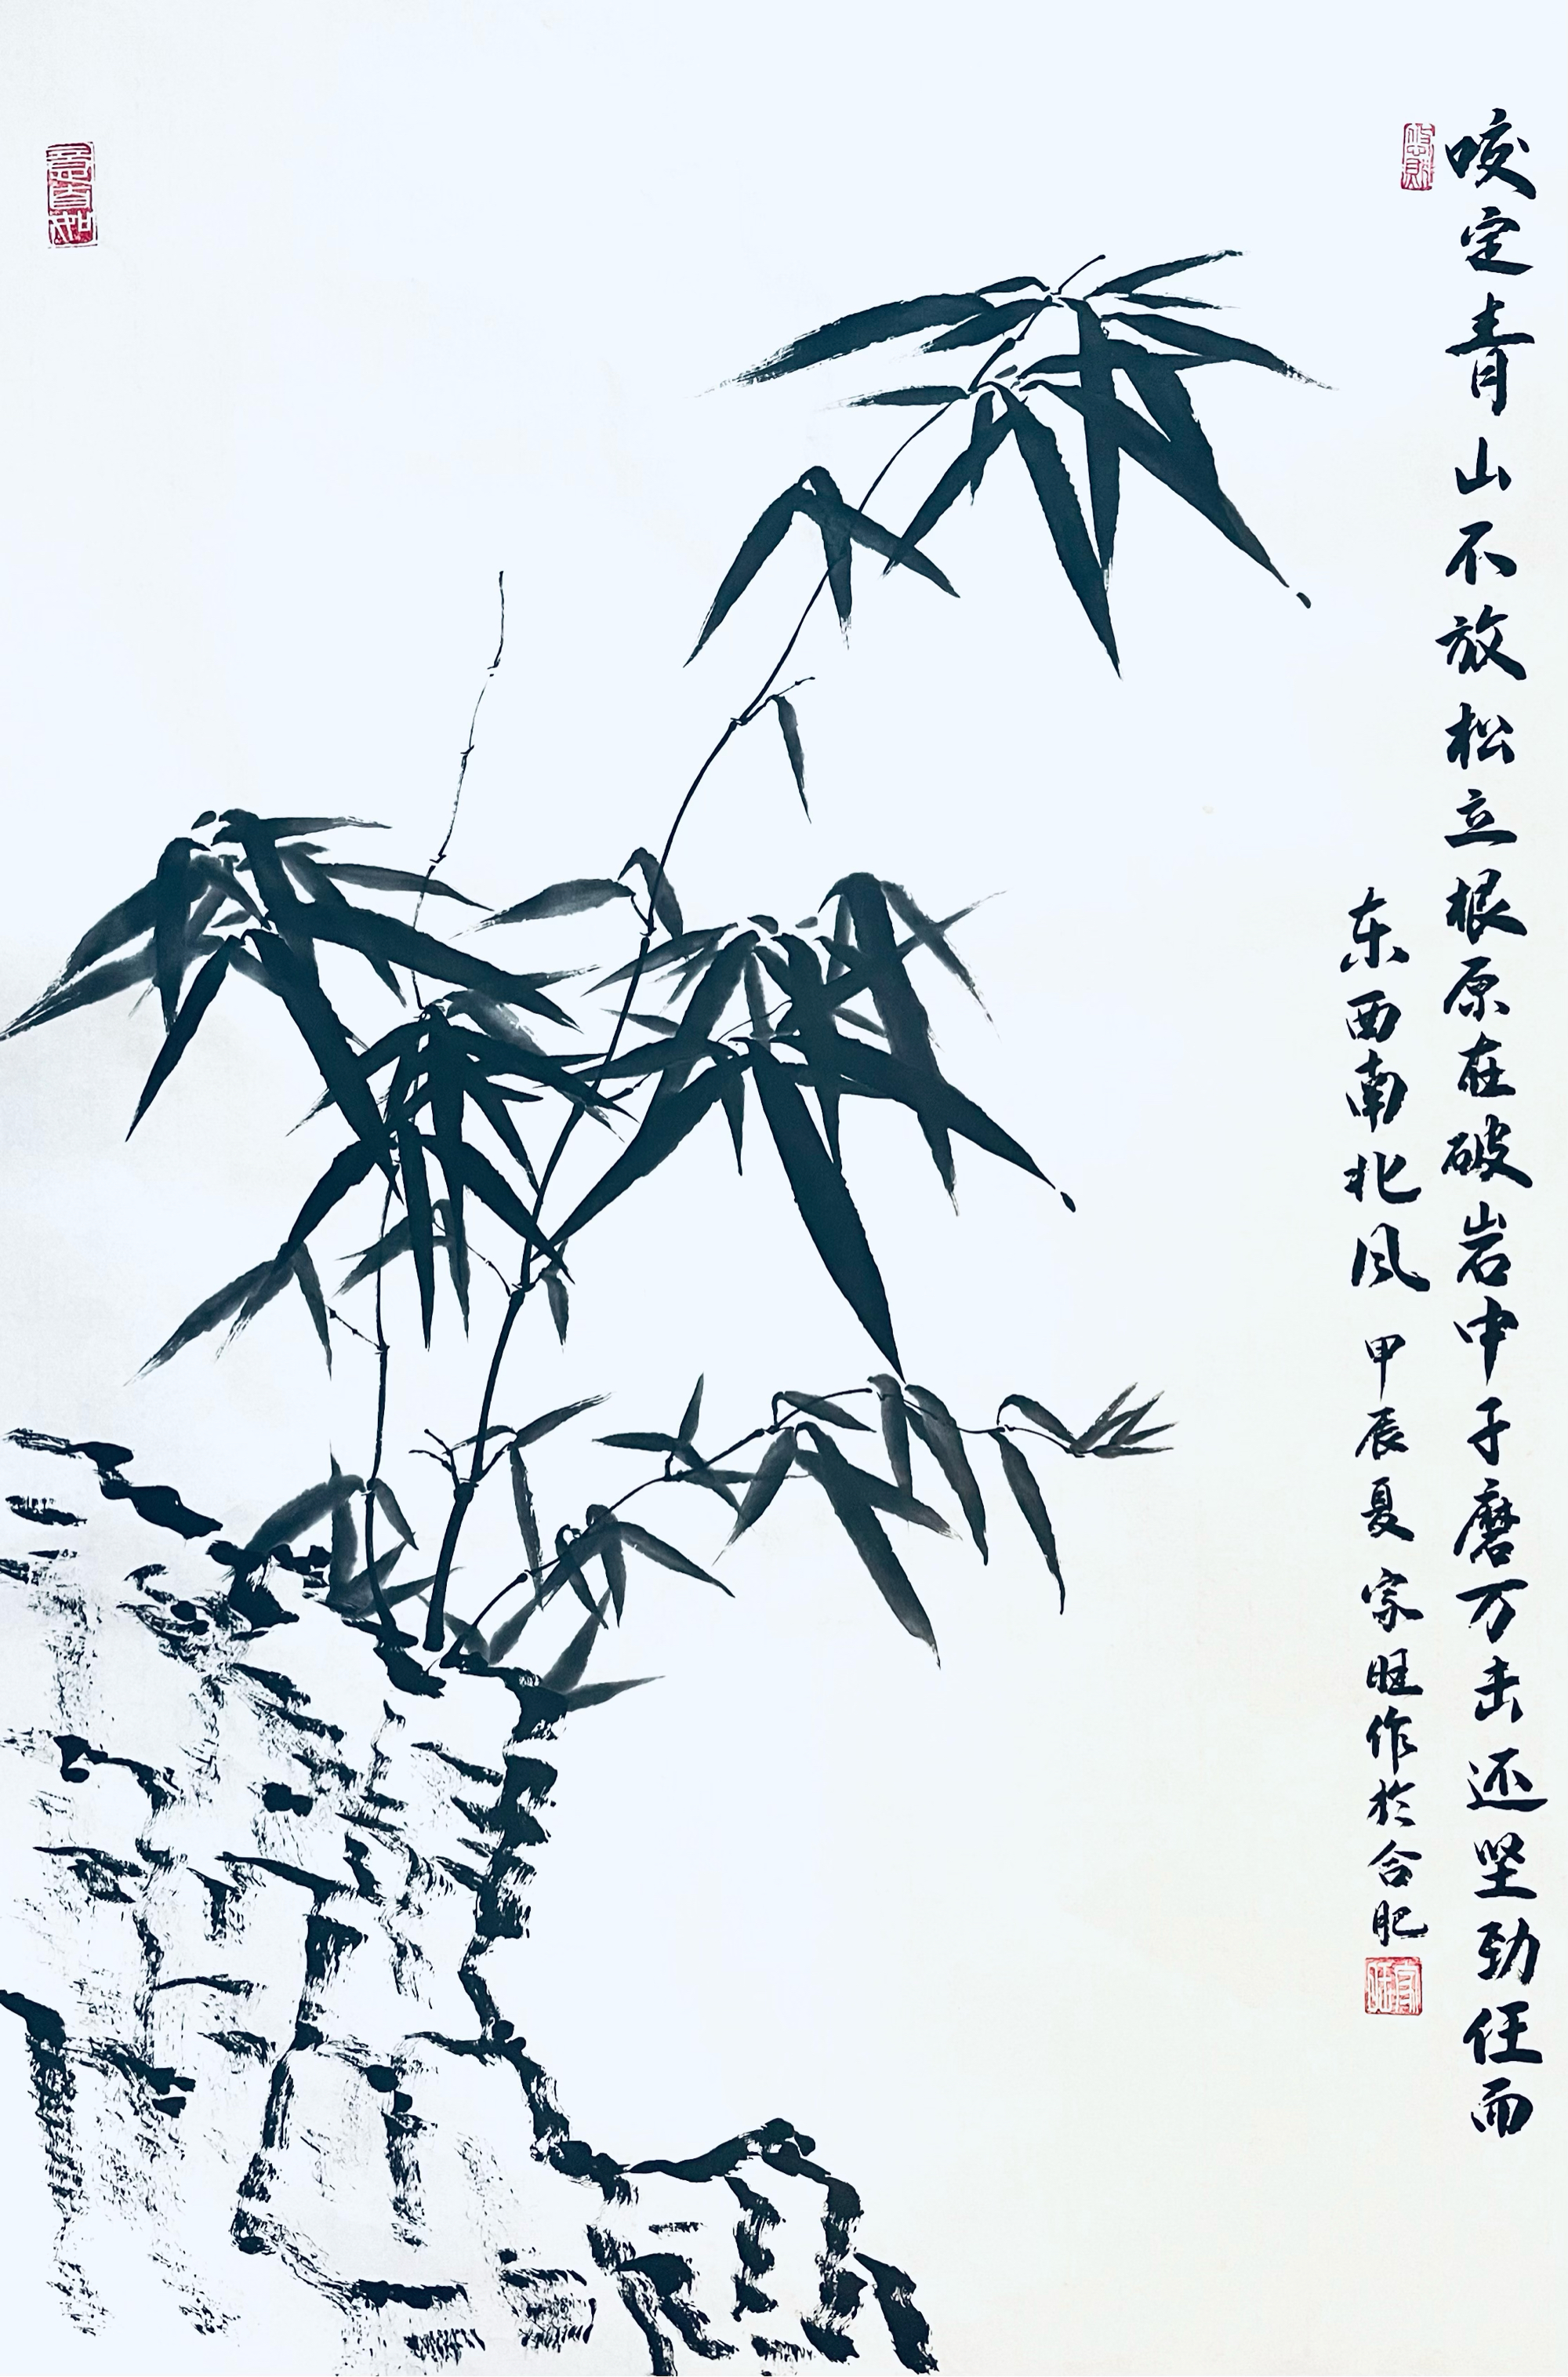 咬定青山不放松立根原在破岩中千磨万击还坚劲任而
东西南北风 甲辰夏 家旺作於合肥